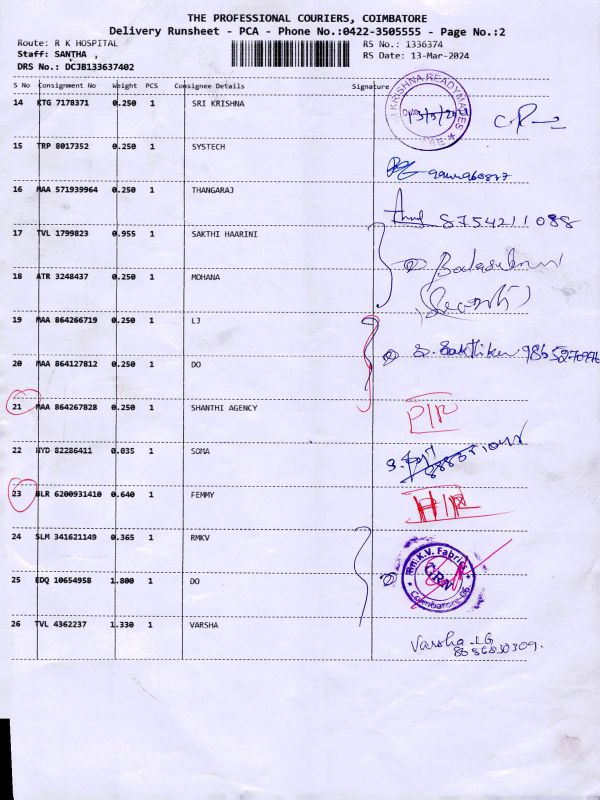 THE PROFESSIONAL COURIERS, COIMBATORE
Delivery Runsheet - PCA - Phone No.:0422-3505555 - Page No.:2
Route: R K HOSPITAL RS No.: 1336374
Staff: SANTHA , RS Date: 13-Mar-2024
DRS No.: DCJB133637402
S No Consignment No Weight PCS Consignee Details Signature
14 KTG 7178371 0.250 1 SRI KRISHNA
KRISHNA READYMADES
15 TRP 8017352 0.250 1 SYSTECH
16 MAA 571939964 0.250 1 THANGARAJ
8754211088
17 TVL 1799823 0.955 1 SAKTHI HAARINI
18 ATR 3248437 0.250 1 MOHANA
19 MAA 864266719 0.250 1 LJ
20 MAA 864127812 0.250 1 DO
21 MAA 864267828 0.250 1 SHANTHI AGENCY
22 HYD 82286411 0.035 1 SOMA
23 BLR 6200931410 0.640 1 FEMMY
24 SLM 341621149 0.365 1 RMKV
Rm.K.V. Fabrics
GRN
25 EDQ 10654958 1.800 1 DO
26 TVL 4362237 1.330 1 VARSHA
Varsha